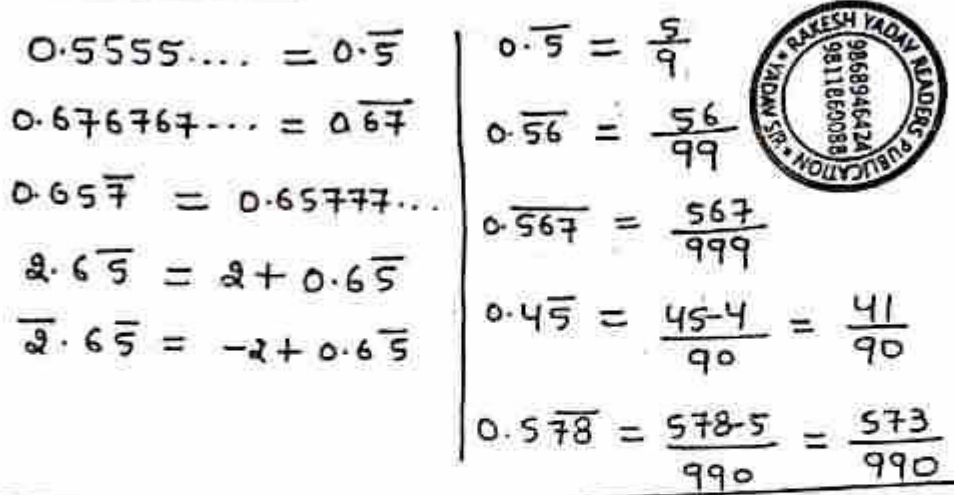 0.5555.... = 0.5̅
0.676767... = 0.6̅7̅
0.657̅ = 0.65777...
2.65̅ = 2 + 0.65̅
2̅.65̅ = -2 + 0.65̅
0.5̅ = 5/9
0.5̅6̅ = 56/99
0.5̅6̅7̅ = 567/999
0.45̅ = 45-4/90 = 41/90
0.57̅8̅ = 578-5/990 = 573/990
RAKESH YADAV READERS PUBLICATION
9868946424
9811860088